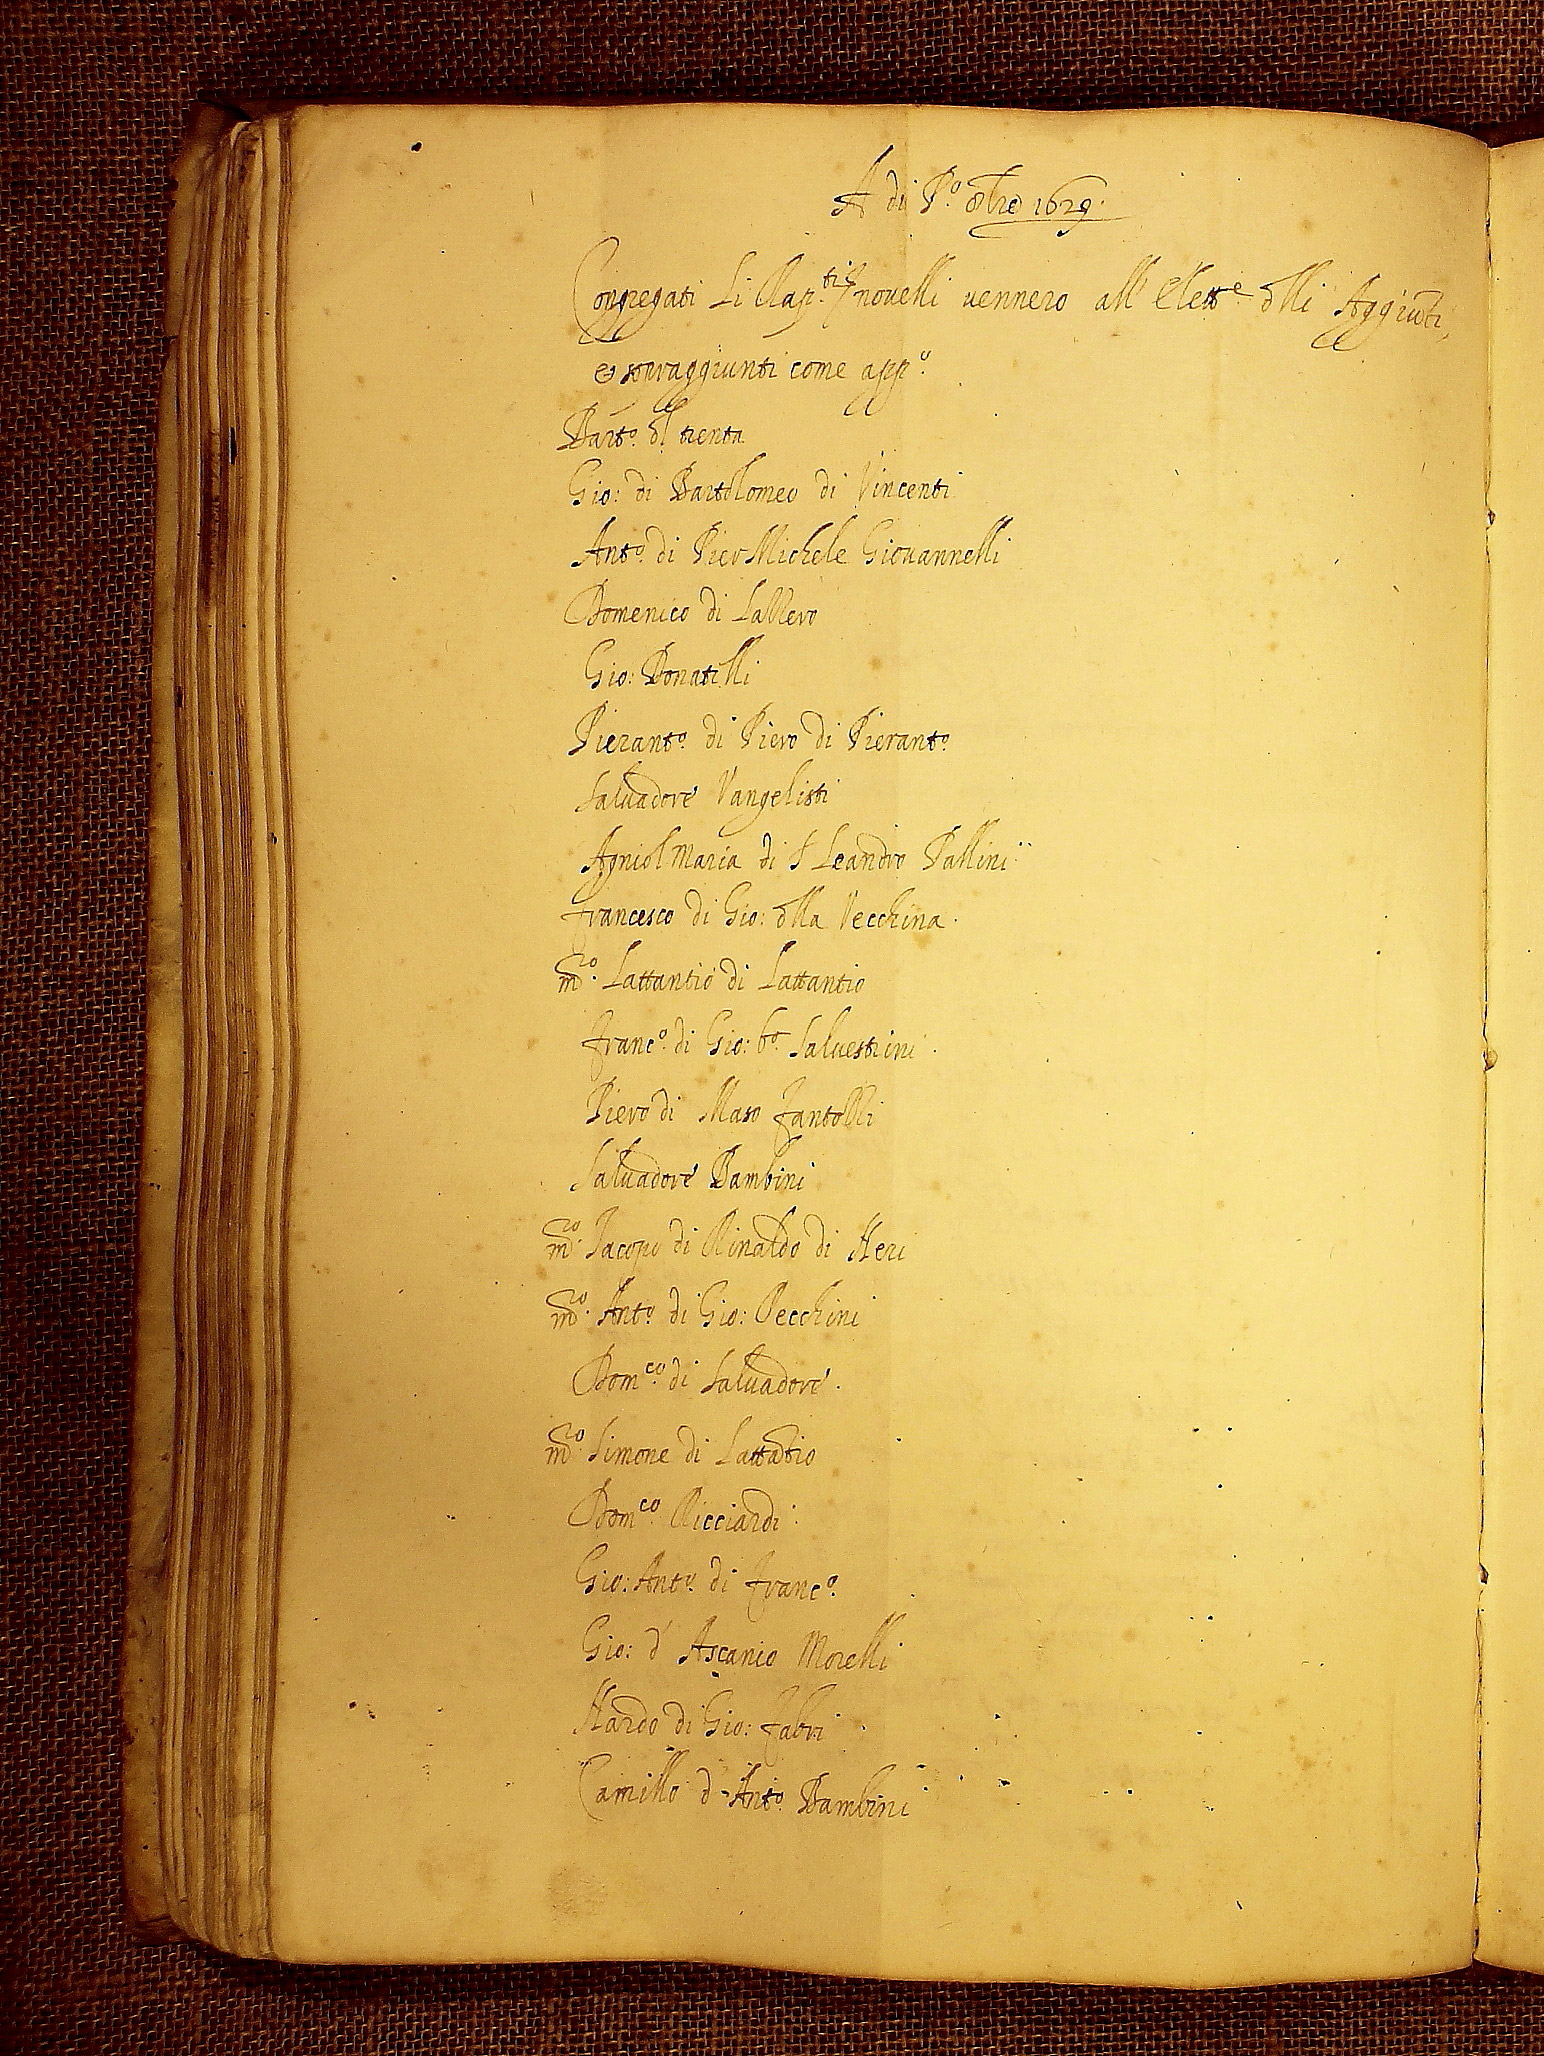 A di P.º 8bre 1629.
Congregati Li Rap.ti novelli vennero all' Elett.e dlli Aggiuti,
& sopraggiunti come app.º
Bart.º dl trenta
Gio: di Bartolomeo di Vincenti
Ant.º di Pier Michele Giovannelli
Domenico di
Gio: Donatelli
Pierant.º di Piero di Pierant.º
Salvadore Vangelisti
Agniol Maria di S Leandro Pallini
francesco di Gio: dlla Vecchina.
m.ro Lattantio di Lattantio
franc.º di Gio: b.ª Salvestrini.
Piero di Maso
Salvadore Bambini
m.ro Jacopo di Rinaldo di Neri
m.ro Ant.º di Gio: Pecchini
Dom.co di Salvadore.
m.ro Simone di Lattatio
Dom.co Ricciardi.
Gio: Ant.º di franc.º
Gio: d' Ascanio Morelli
Nardo di Gio: fabri
Camillo d Ant.º Bambini